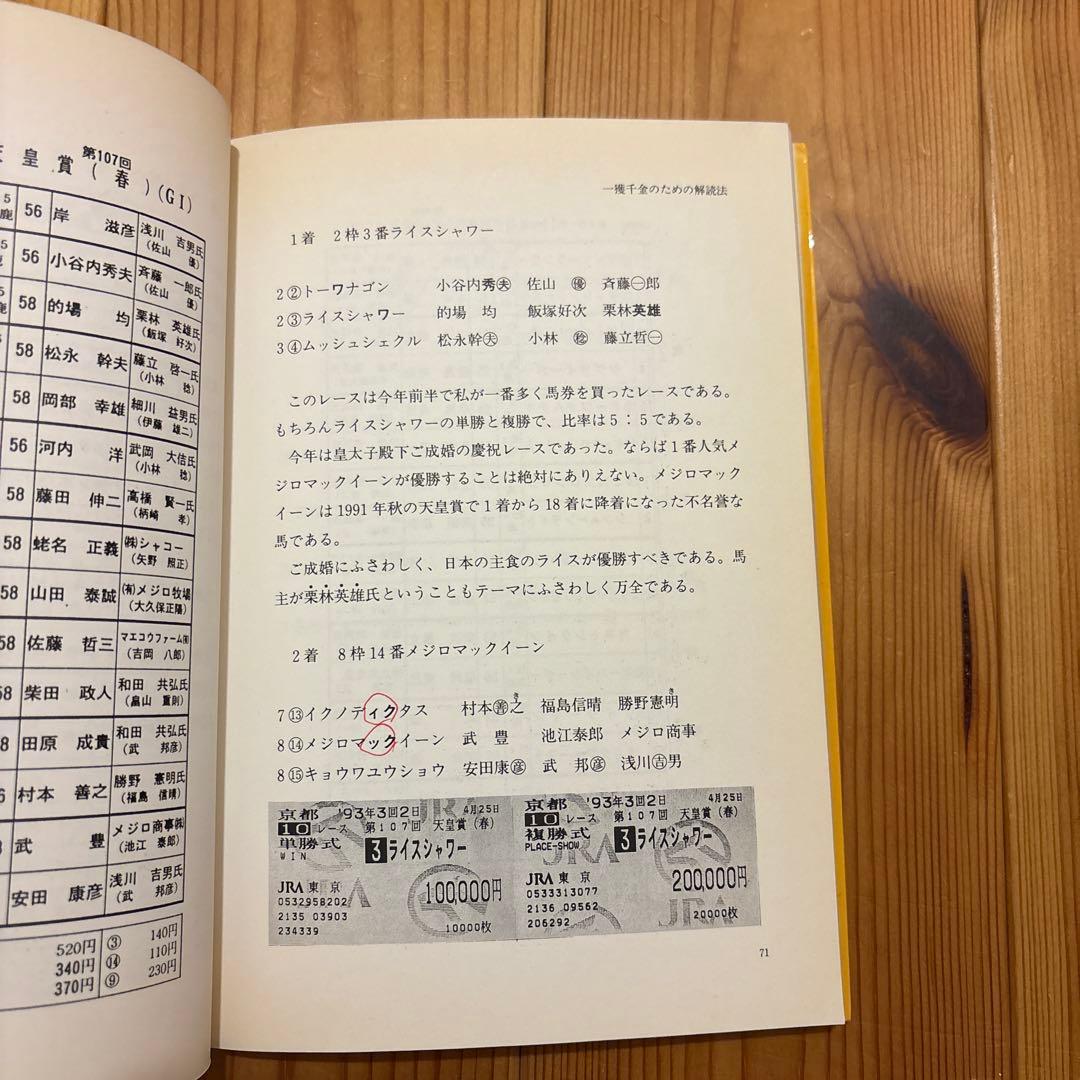 第107回
天皇賞(春)(GI)
5
鹿 56 岸 滋彦 浅川 吉男氏
(佐山 優)
5
56 小谷内秀夫 斉藤 一郎氏
(佐山 優)
5
鹿 58 的場 均 栗林 英雄氏
(飯塚 好次)
58 松永 幹夫 藤立 啓一氏
(小林 稔)
58 岡部 幸雄 細川 益男氏
(伊藤 雄二)
56 河内 洋 武岡 大佶氏
(小林 稔)
58 藤田 伸二 高橋 賢一氏
(柄崎 孝)
58 蛯名 正義 ㈱シャコー
(矢野 照正)
58 山田 泰誠 ㈲メジロ牧場
(大久保正陽)
58 佐藤 哲三 マエコウファーム㈲
(吉岡 八郎)
58 柴田 政人 和田 共弘氏
(畠山 重則)
8 田原 成貴 和田 共弘氏
(武 邦彦)
6 村本 善之 勝野 憲明氏
(福島 信晴)
武 豊 メジロ商事㈱
(池江 泰郎)
安田 康彦 浅川 吉男氏
(武 邦彦)
520円 ③ 140円
340円 ⑭ 110円
370円 ⑨ 230円
一獲千金のための解読法
1着 2枠3番ライスシャワー
2②トーワナゴン 小谷内秀夫 佐山 優 斉藤一郎
2③ライスシャワー 的場 均 飯塚好次 栗林英雄
3④ムッシュシェクル 松永幹夫 小林 稔 藤立哲一
このレースは今年前半で私が一番多く馬券を買ったレースである。
もちろんライスシャワーの単勝と複勝で、比率は5:5である。
今年は皇太子殿下ご成婚の慶祝レースであった。ならば1番人気メ
ジロマックイーンが優勝することは絶対にありえない。メジロマック
イーンは1991年秋の天皇賞で1着から18着に降着になった不名誉な
馬である。
ご成婚にふさわしく、日本の主食のライスが優勝すべきである。馬
主が栗林英雄氏ということもテーマにふさわしく万全である。
2着 8枠14番メジロマックイーン
7⑬イクノディクタス 村本善之 福島信晴 勝野憲明
8⑭メジロマックイーン 武 豊 池江泰郎 メジロ商事
8⑮キョウワユウショウ 安田康彦 武 邦彦 浅川吉男
京都 '93年3回2日 4月25日
10レース 第107回 天皇賞(春)
単勝式
WIN
3 ライスシャワー
JRA 東京
0532958202 100,000円
2135 03903
234339 10000枚
京都 '93年3回2日 4月25日
10レース 第107回 天皇賞(春)
複勝式
PLACE-SHOW
3 ライスシャワー
JRA 東京
0533313077 200,000円
2136 09562
206292 20000枚
71